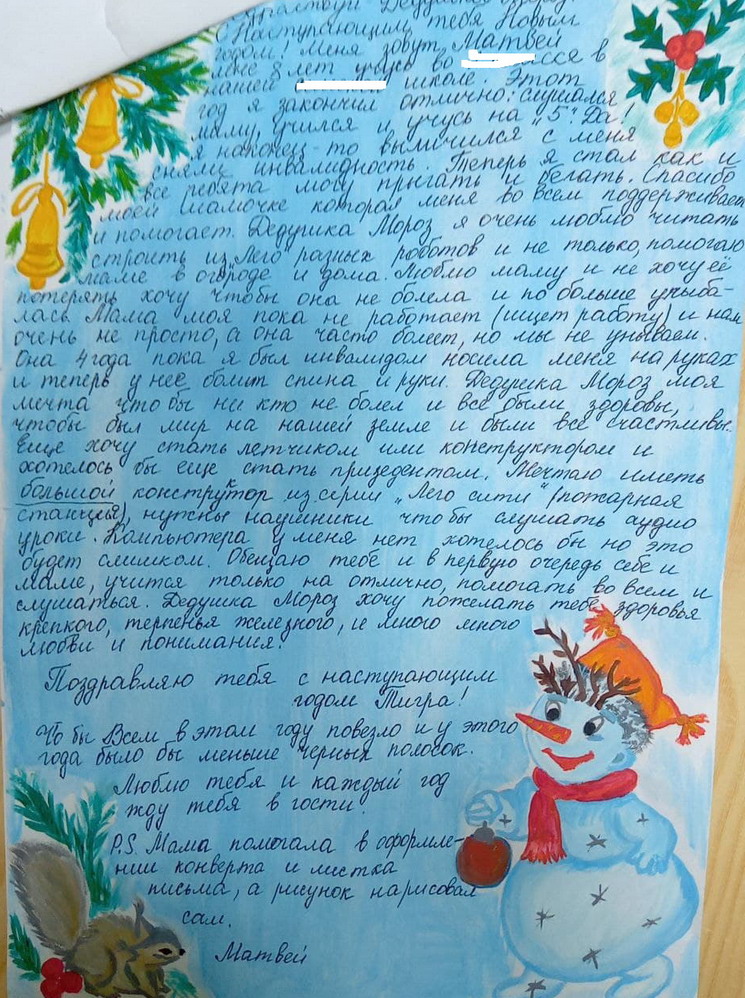 Здравствуй Дедушка Мороз!
С Наступающим тебя Новым
годом! Меня зовут Матвей
мне 8 лет учусь во
нашей школе. Этот
год я закончил отлично: слушался
маму, учился и учусь на „5". Да!
я наконец-то вылечился с меня
сняли инвалидность. Теперь я стал как и
все ребята могу прыгать и бегать. Спасибо
моей мамочке которая меня во всем поддерживает
и помогает. Дедушка Мороз я очень люблю читать
строить из „Лего" разных роботов и не только, помогаю
маме в огороде и дома. Люблю маму и не хочу её
потерять хочу чтобы она не болела и по больше улыба-
лась. Мама моя пока не работает (ищет работу) и нам
очень не просто, а она часто болеет, но мы не унываем.
Она 4 года пока я был инвалидом носила меня на руках
и теперь у неё болит спина и руки. Дедушка Мороз моя
мечта что бы ни кто не болел и все были здоровы,
чтобы был мир на нашей земле и были все счастливы.
Еще хочу стать летчиком или конструктором и
хотелось бы еще стать призедентом. Мечтаю иметь
большой конструктор из серии „Лего сити" (пожарная
станция), нужны наушники что бы слушать аудио
уроки. Компьютера у меня нет хотелось бы но это
будет слишком. Обещаю тебе и в первую очередь себе и
маме, учится только на отлично, помогать во всем и
слушаться. Дедушка Мороз хочу пожелать тебе здоровья
крепкого, терпенья железного, и много много
любви и понимания!
Поздравляю тебя с наступающим
годом Тигра!
Что бы Всем в этом году повезло и у этого
года было бы меньше черных полосок.
Люблю тебя и каждый год
жду тебя в гости.
P.S. Мама помогала в оформле-
нии конверта и листка
письма, а рисунок нарисовал
сам.
Матвей